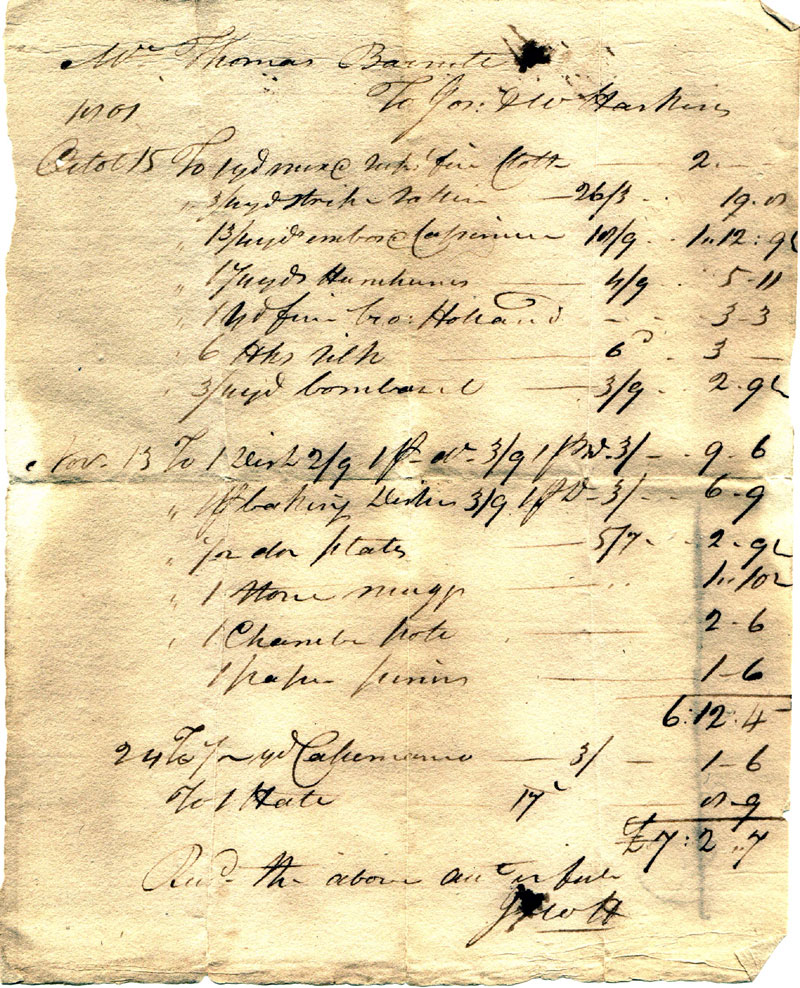 Mr Thomas Barnett
To Jos: & W Harkins
1801
Octor 15 To 1 yd mixd fine Cloth — 2 . —
" 3/4 yd strip — 26/3 . . 19 . 8
" 1 3/4 yds embosd Casimere 18/9 . . 1 .. 12 : 9
" yds Humhums — 4/9 . . 5 - 11
" 1 yd fine bro: Holland - - 3 - 3
" 6 Hks silk — 6d . 3 —
" 3/4 yd bombazet — 3/9 . 2 . 9
Nov. 13 To 1 Dish 2/9 1 do 3/9 1 Do 3/- . . 9 . 6
" 1 baking Dishes 3/9 1 D - 3/- . . 6 - 9
" 1/2 doz plates — 5/7 - . . 2 - 9
" 1 Stone mugg — . . 1 .. 10
" 1 Chamber pote — — 2 - 6
1 paper pinns — — 1 - 6
6 : 12 . 4
24 To 1/2 yd Casimere — 3/ — 1 - 6
To 1 Hate 17 — 8 - 9
£7 : 2 .. 7
Recd the above act in full
J & W H